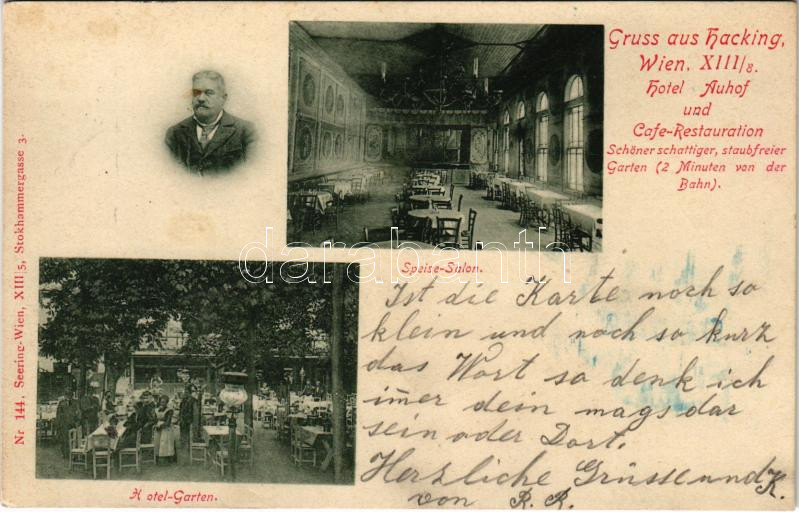 Gruss aus Hacking,
Wien, XIII/8.
Hotel Auhof
und
Cafe-Restauration
Schöner schattiger, staubfreier
Garten (2 Minuten von der
Bahn).
Speise-Salon.
Ist die Karte noch so
klein und noch so kurz
das Wort so denk ich
im̅er dein mags dar
sein oder Dort.
Herzliche Grüsse und K.
von R. R.
Hotel-Garten.
Nr 144, Seering-Wien, XIII/5, Stokhammergasse 3.
darabanth.com